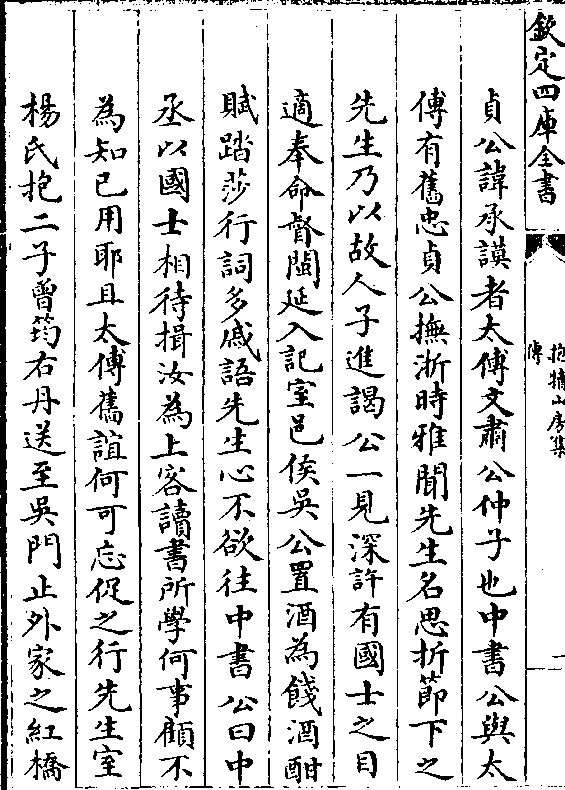 欽定四庫全書
抱犢山房集
傳
一
貞公諱承謨者太傅文肅公仲子也中書公與太
傅有舊忠貞公撫浙時雅聞先生名思折節下之
先生乃以故人子進謁公一見深許有國士之目
適奉命督閩延入記室邑侯吳公置酒為餞酒酣
賦踏莎行詞多慼語先生心不欲往中書公曰中
丞以國士相待揖汝為上客讀書所學何事顧不
為知已用耶且太傅舊誼何可忘促之行先生室
楊氏抱二子曾筠右丹送至吳門止外家之紅橋